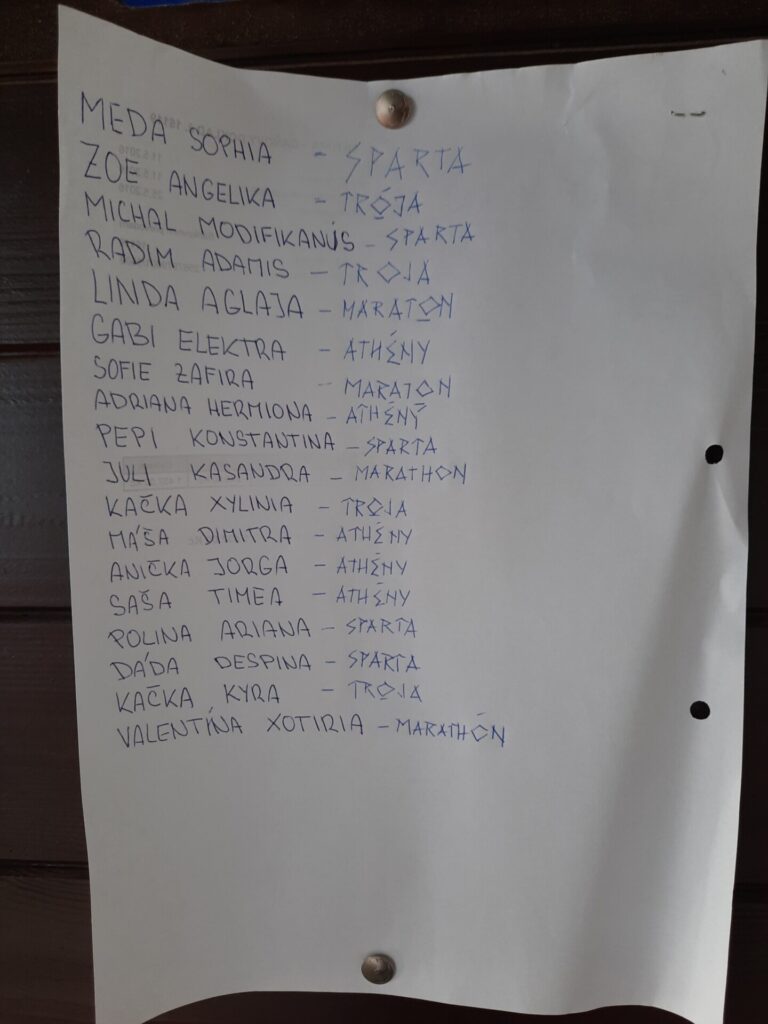 MEDA SOPHIA - SPARTA
ZOE ANGELIKA - TRÓJA
MICHAL MODIFIKANÚS - SPARTA
RADIM ADAMIS - TROJA
LINDA AGLAJA - MARATON
GABI ELEKTRA - ATHÉNY
SOFIE ZAFIRA - MARATON
ADRIANA HERMIONA - ATHÉNY
PEPI KONSTANTINA - SPARTA
JULI KASANDRA - MARATHON
KAČKA XYLINIA - TROJA
MÁŠA DIMITRA - ATHÉNY
ANIČKA JORGA - ATHÉNY
SAŠA TIMEA - ATHÉNY
POLINA ARIANA - SPARTA
DÁĎA DESPINA - SPARTA
KAČKA KYRA - TROJA
VALENTÍNA XOTIRIA - MARATHÓN